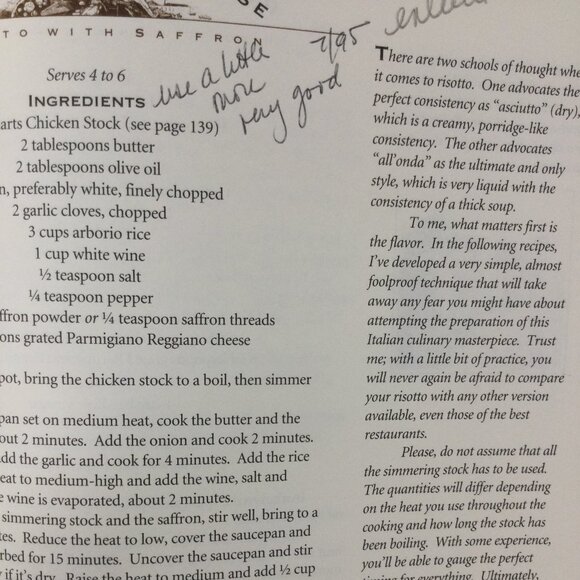 TO WITH SAFFRON
Serves 4 to 6
INGREDIENTS
use a little
more
very good
2/95
arts Chicken Stock (see page 139)
2 tablespoons butter
2 tablespoons olive oil
n, preferably white, finely chopped
2 garlic cloves, chopped
3 cups arborio rice
1 cup white wine
½ teaspoon salt
¼ teaspoon pepper
ffron powder or ¼ teaspoon saffron threads
ons grated Parmigiano Reggiano cheese
pot, bring the chicken stock to a boil, then simmer
pan set on medium heat, cook the butter and the
out 2 minutes. Add the onion and cook 2 minutes.
dd the garlic and cook for 4 minutes. Add the rice
eat to medium-high and add the wine, salt and
e wine is evaporated, about 2 minutes.
simmering stock and the saffron, stir well, bring to a
tes. Reduce the heat to low, cover the saucepan and
rbed for 15 minutes. Uncover the saucepan and stir
if it's dry. Raise the heat to medium and add ½ cup
There are two schools of thought whe
it comes to risotto. One advocates the
perfect consistency as "asciutto" (dry),
which is a creamy, porridge-like
consistency. The other advocates
"all'onda" as the ultimate and only
style, which is very liquid with the
consistency of a thick soup.
To me, what matters first is
the flavor. In the following recipes,
I've developed a very simple, almost
foolproof technique that will take
away any fear you might have about
attempting the preparation of this
Italian culinary masterpiece. Trust
me; with a little bit of practice, you
will never again be afraid to compare
your risotto with any other version
available, even those of the best
restaurants.
Please, do not assume that all
the simmering stock has to be used.
The quantities will differ depending
on the heat you use throughout the
cooking and how long the stock has
been boiling. With some experience,
you'll be able to gauge the perfect
timing for everything. Ultimately,